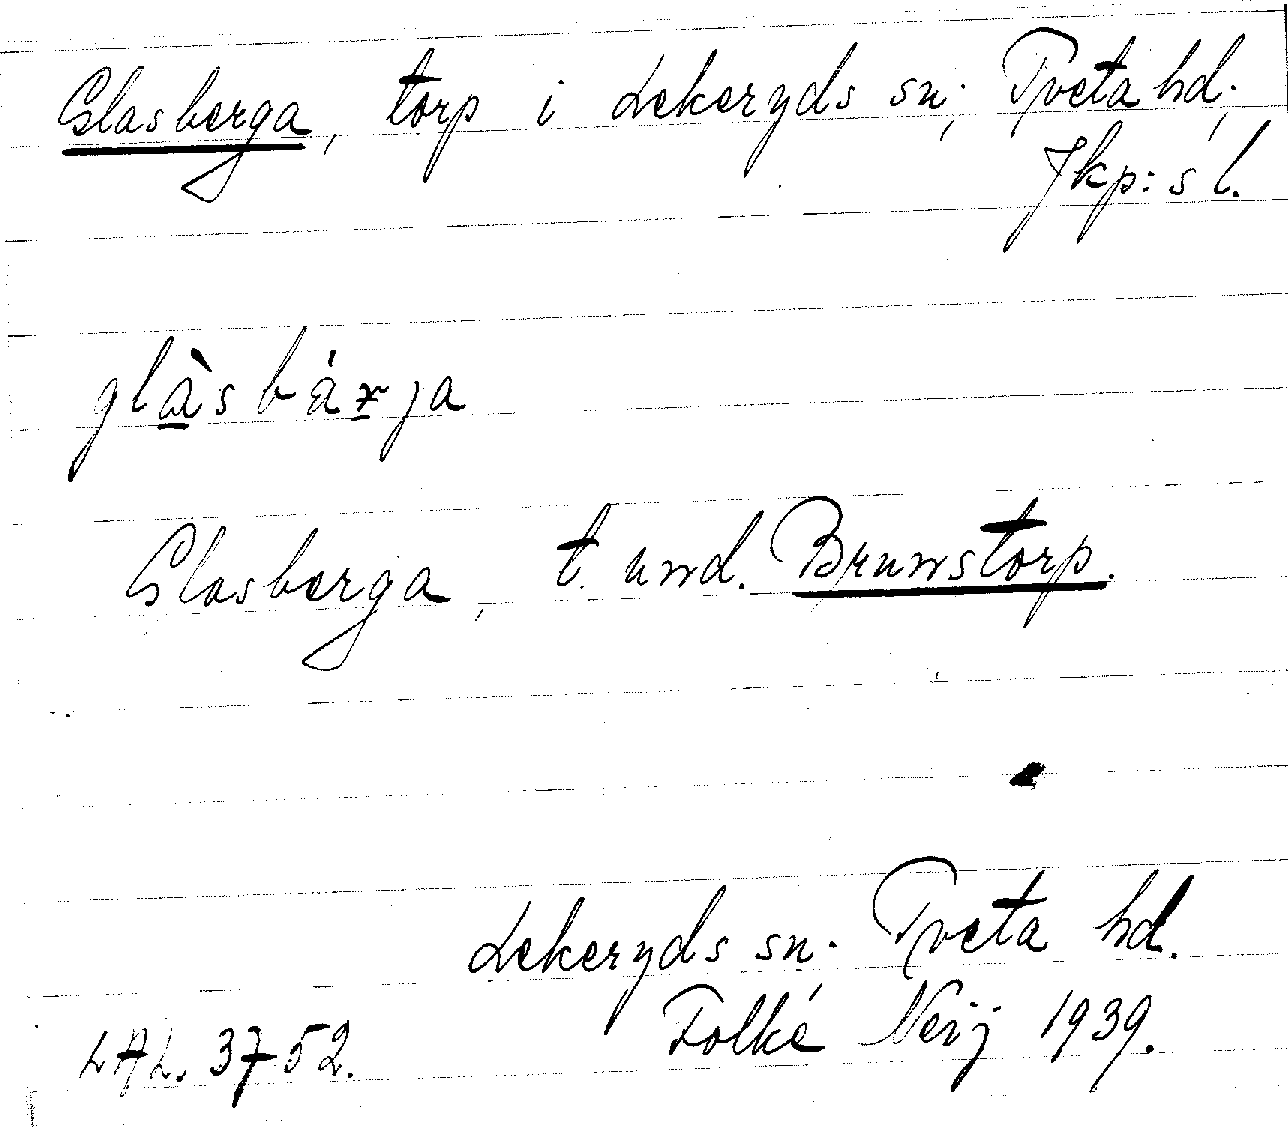 Glasberga, torp i Lekeryds sn, Tveta hd,
Jkp:s l.
Glasberga, t. und. Brunstorp.
Lekeryds sn. Tveta hd.
LAL. 3752. Folke Neij 1939.